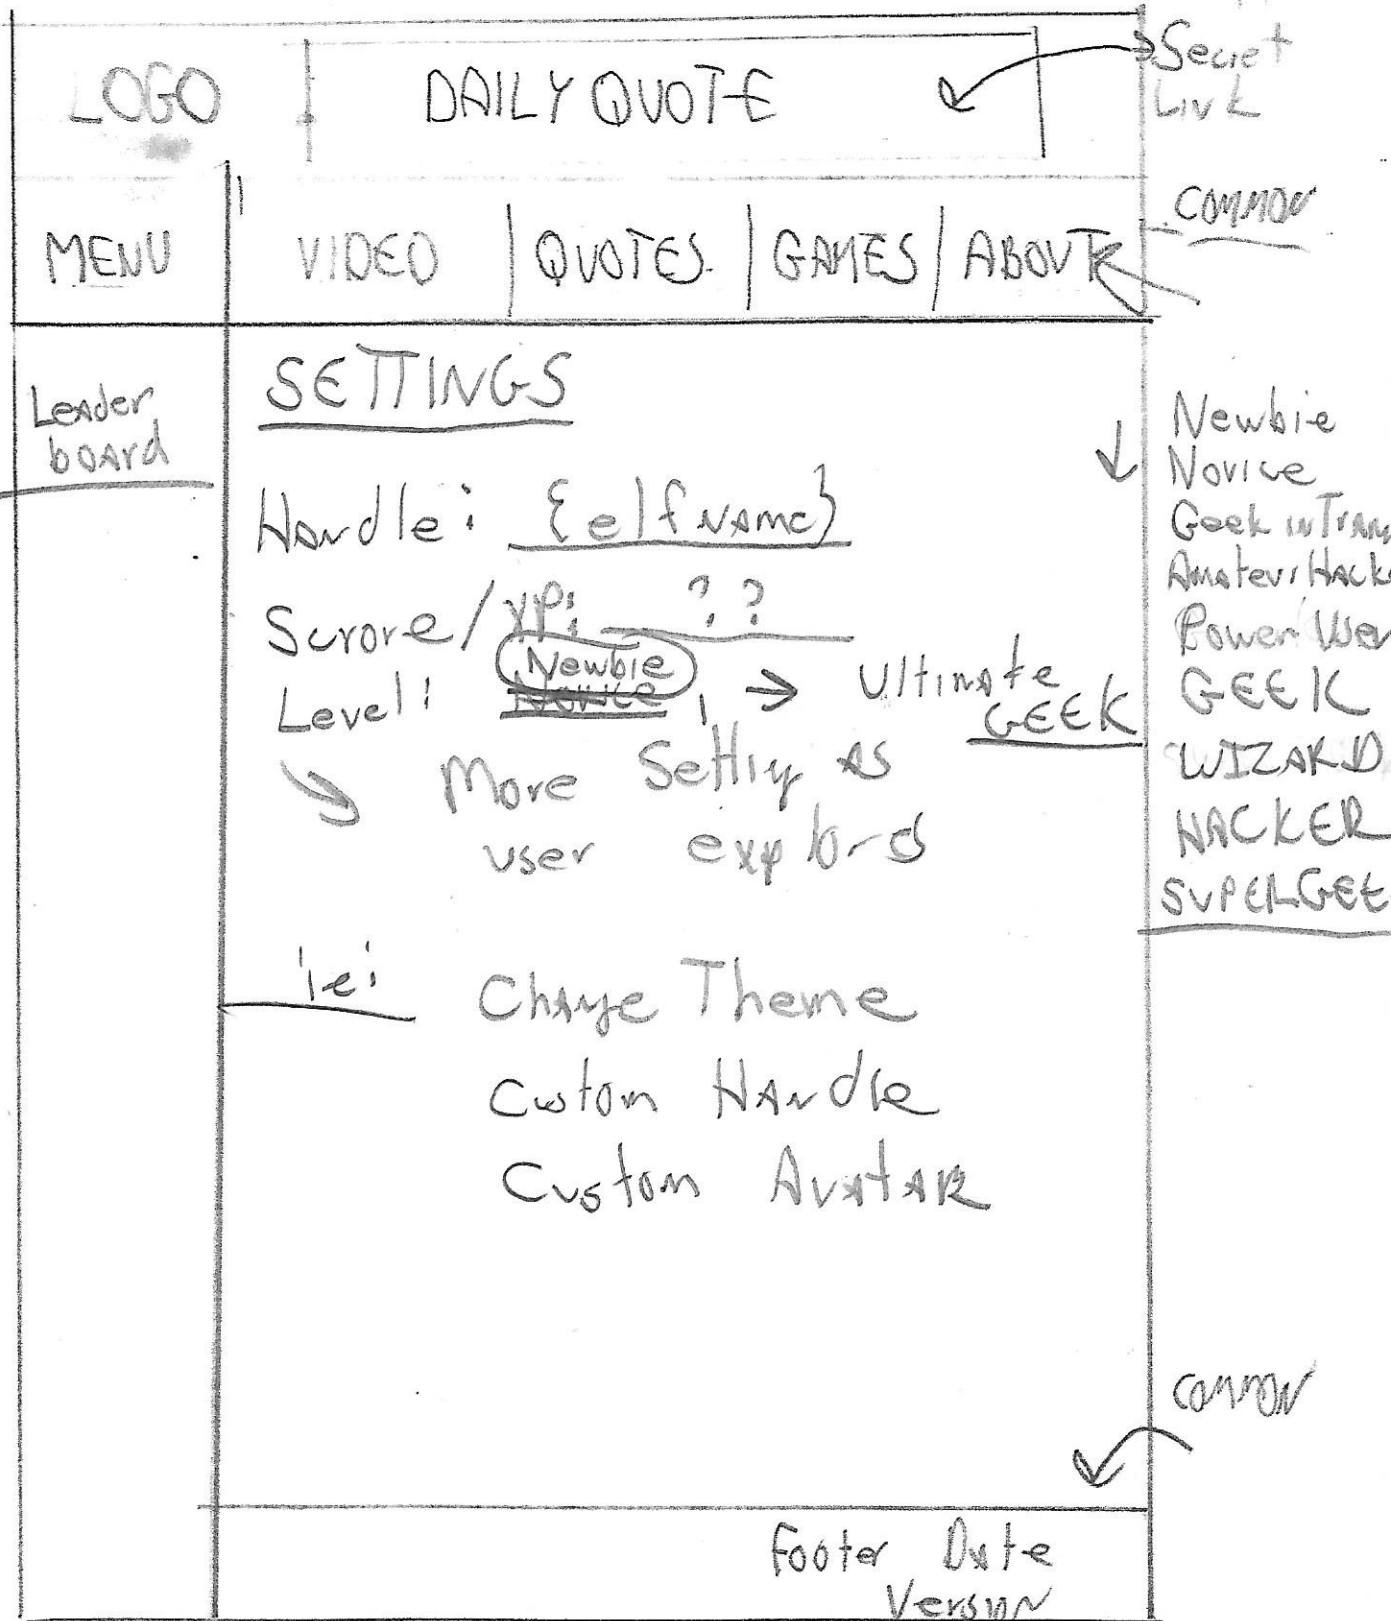 LOGO
DAILY QUOTE
Secret
Link
COMMON
MENU
VIDEO
QUOTES
GAMES
ABOUT
Leader
board
SETTINGS
Handle: {elfname}
Scrore/XP: ??
Level: Newbie
Novice
→ Ultimate
GEEK
More Setting as
user explors
ie:
Change Theme
Custom Handle
Custom Avatar
Newbie
Novice
Geek in
Amateur
Power User
GEEK
WIZARD
HACKER
SUPERGEE
COMMON
Footer Date
Version